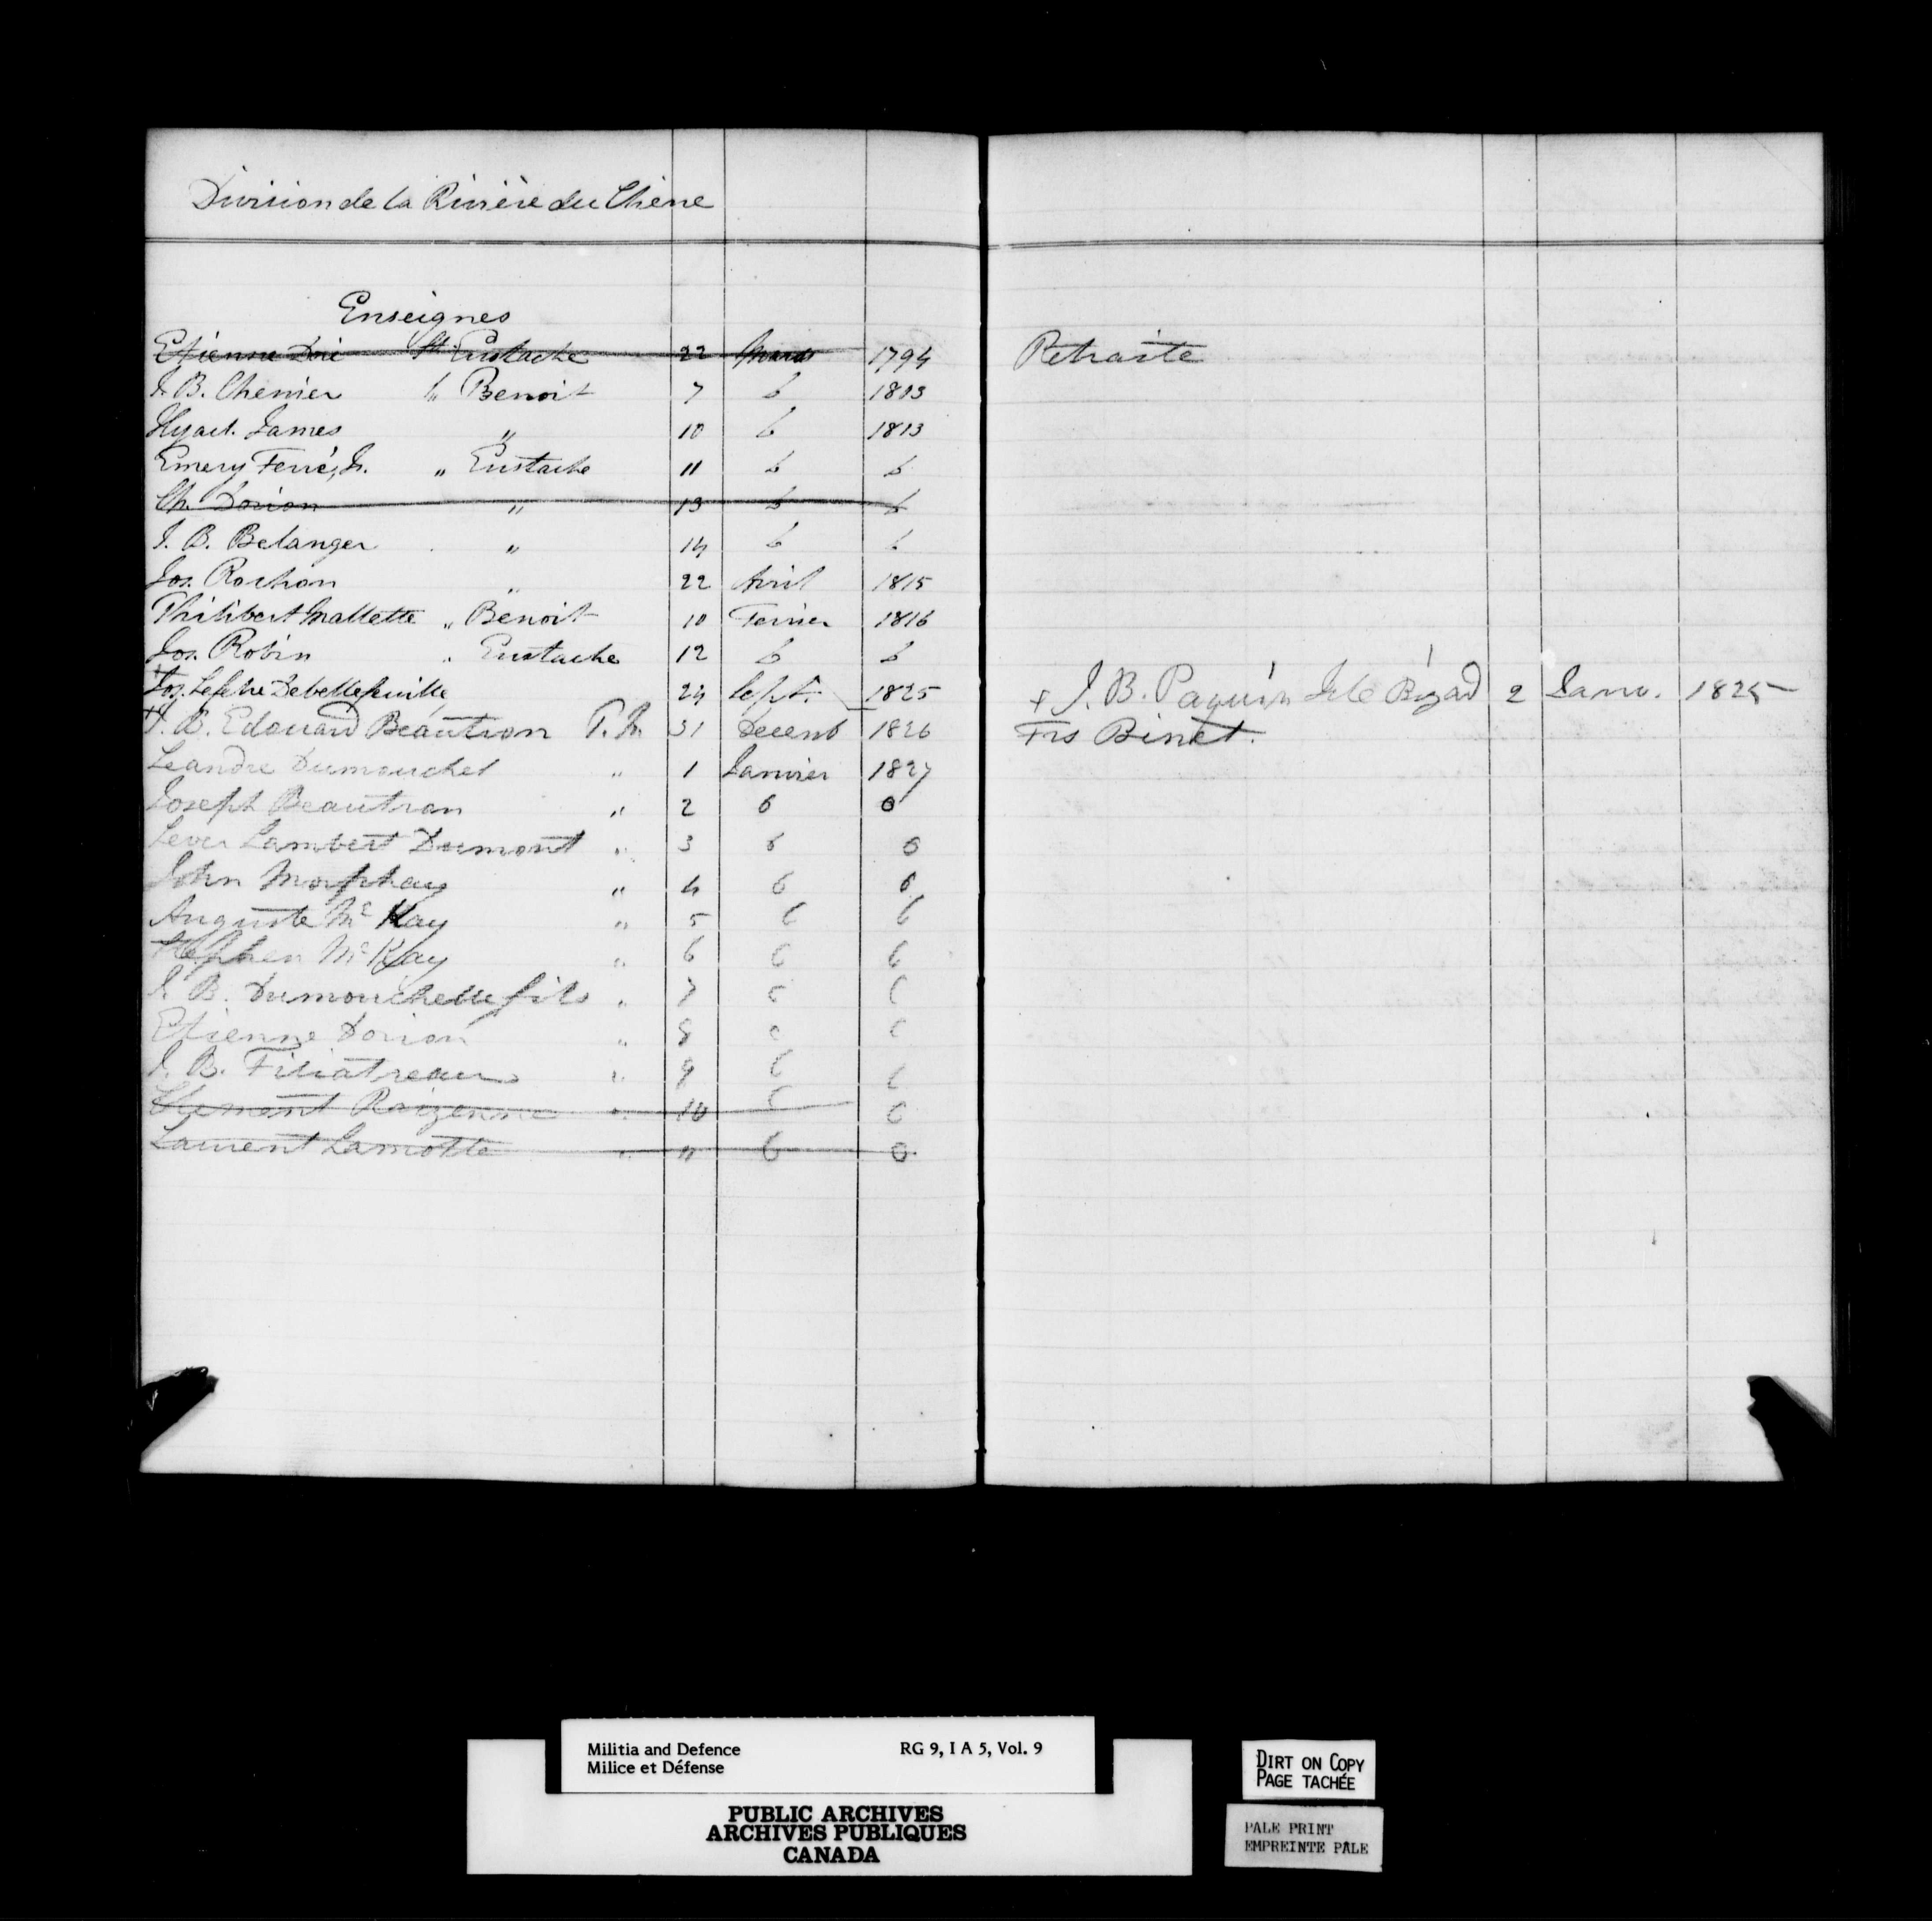 Division de la Rivière du Chène
Enseignes
Etienne Doré St. Eustache 22 Mars 1794 Retraite
J. B. Chenier " Benoit 7 " 1803
Hyact. James " 10 " 1813
Emery Ferré, Jr. " Eustache 11 " "
Ch. Dorion " 13 " "
J. B. Belanger " 14 " "
Jos. Rochon " 22 Avril 1815
Philibert Mallette " Benoit 10 Fevrier 1816
Jos. Robin " Eustache 12 " "
+ Jos. Lefebre Debellefeuille 24 Sept. 1825 + J. B. Paquin Isle Bizard 2 Janv. 1825
J. B. Edouard Beautron 31 Decemb 1826 Frs Binet.
Leandre Dumouchel " 1 Janvier 1827
Joseph Beautron " 2 " "
Lambert Dumont " 3 " "
John Morphay " 4 " "
Auguste Mc Kay " 5 " "
Stephen Mc Kay " 6 " "
J. B. Dumouchelle fils " 7 " "
Etienne Dorion " 8 " "
J. B. Filiatreau " 9 " "
Clement Raizenne " 10 " "
Laurent Lamotte " " " "
Militia and Defence RG 9, I A 5, Vol. 9
Milice et Défense
PUBLIC ARCHIVES
ARCHIVES PUBLIQUES
CANADA
DIRT ON COPY
PAGE TACHÉE
PALE PRINT
EMPREINTE PÂLE